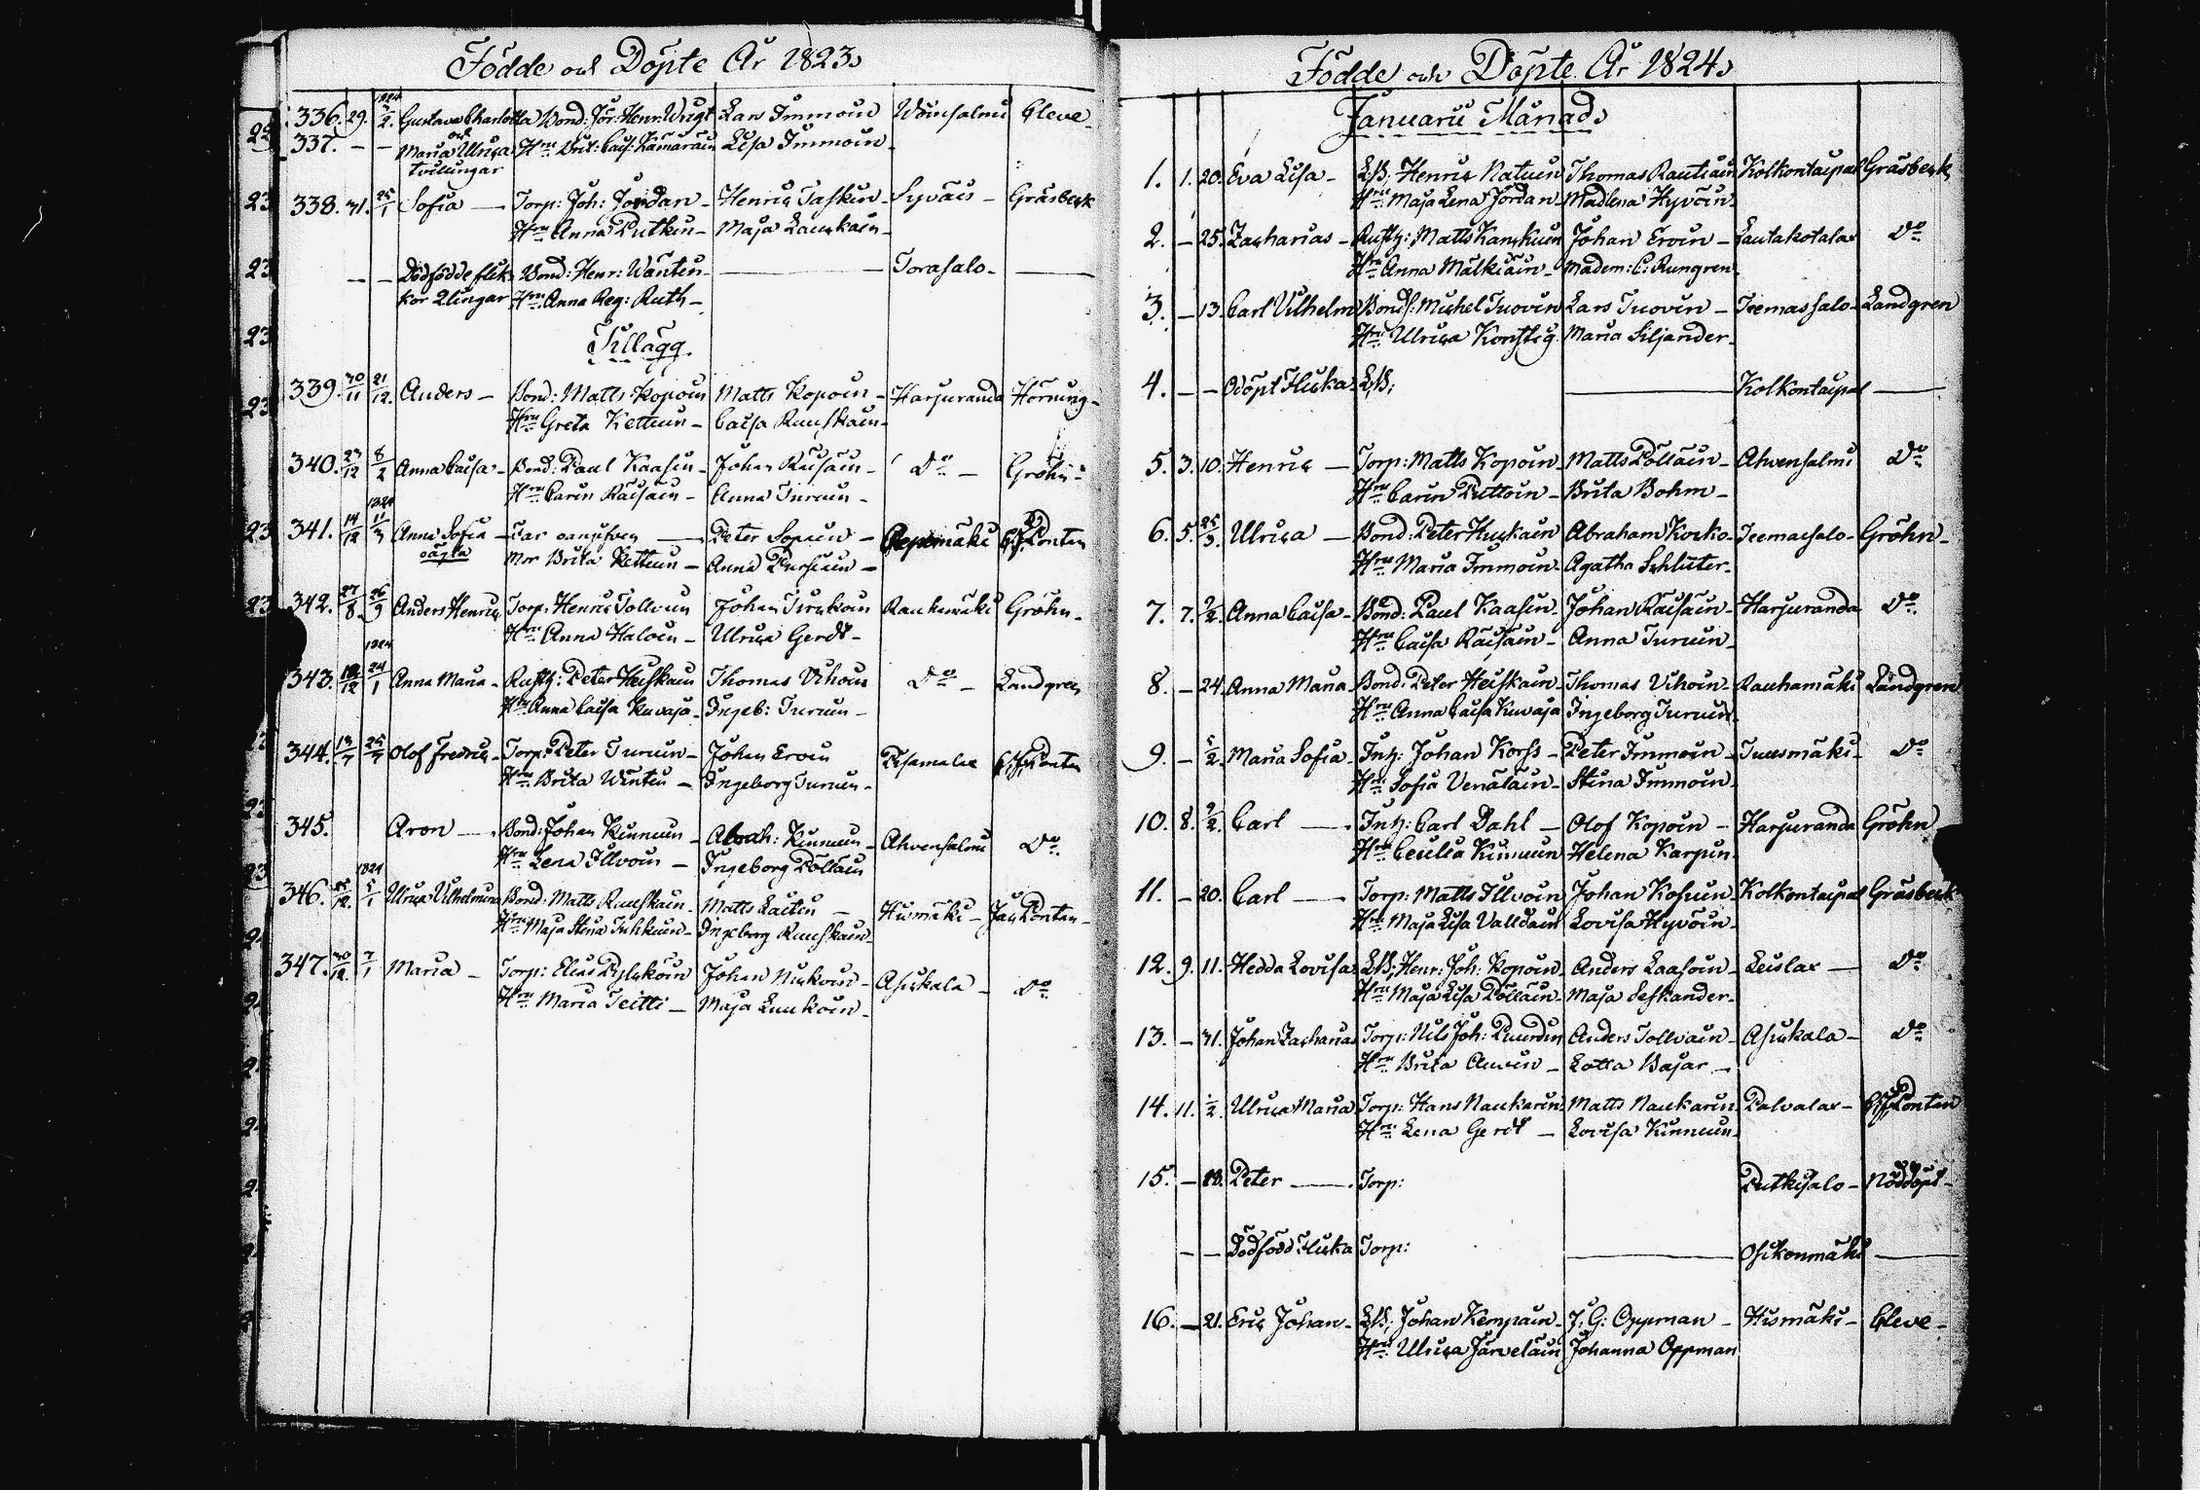 Födde och Döpte År 1823.
336. 29. 1824 2. Gustava Charlotta Bond: Jör: Henr: Wrigt Lars Immoin Woinsalmi Cleve
337. — — och Maria Ulrica Hru Brit: Cais: Kämäräin Lisa Immoin
tvillingar
338. 31. 25/1 Sofia — Torp: Joh: Jordan Henric Taskin Syväis Gräsbeck
Hru Anna Putkin Maja Lauskain
— — Dödfödde flik- Bond: Henr: Wänttin — Torasalo —
kor 2lingar Hru Anna Reg: Ruth
Tillägg.
339. 30/11 21/12 Anders Bond: Matts Kopoin Matts Kopoin Harjuranda Hornung
Hru Greta Kettuin Caisa Ruuskain
340. 23/12 8/2 Anna Caisa Bond: Paul Kaasin Johan Räisäin Do Gröhn
Hru Carin Räisäin Anna Turuin
341. 14/12 1824 11/3 Anna Sofia Far oangifven — Peter Sopain Pontan
oägta Mor Brita Kettuin Anna Pursiain
342. 27/8 26/9 Anders Henric Torp: Henric Tollvain Johan Tirckoin Rauhamäki Gröhn
Hru Anna Haloin Ulrica Gerdt
343. 12 1824 24/1 Anna Maria Rusth: Peter Heiskain Thomas Vihoin Do Landgren
Hru Anna Caisa Kuvaja Ingeb: Turuin
344. 25 Olof Fredric Torp: Peter Turuin Johan Eroin Pontan
Hru Brita Wäntin Ingeborg Turuin
345. Aron — Bond: Johan Kinnuin Abrah: Kinnuin Ahvensalmi Do
Hru Lena Illvoin Ingeborg Pölläin
346. 12 1824 5/1 Ulrica Vilhelmina Bond: Matts Ruuskain Matts Laitin Hismäki Jac Pontan
Hru Maja Stina Tuhkuin Ingeborg Ruuskain
347. 30/12 7/1 Maria Torp: Elias Pylcköin Johan Muckoin Asickala Do
Hru Maria Teitti Maja Luukoin
Födde och Döpte År 1824.
Januarii Månad.
1. 1. 20. Eva Lisa Henric Natuin Thomas Rautiain Kolkontaipal Gräsbeck
Hru Maja Lena Jordan Madlena Hyvöin
2. — 25. Zacharias Rusth: Matts Kanckuin Johan Eroin Lautakotalax Do
Hru Anna Malkiain Madem: C: Rungren
3. — 13. Carl Vilhelm Bonds: Michel Tuovin Lars Tuovin Teemassalo Landgren
Hru Ulrica Konstig Maria Siljander
4. — — Odöpt Flicka Kolkontaipal —
5. 3. 10. Henric — Torp: Matts Kopoin Matts Pölläin Ahvensalmi Do
Hru Carin Puttoin Brita Bohm
6. 5. 25 Ulrica — Bond: Peter Huckain Abraham Korko Teemassalo Gröhn
Hru Maria Immoin Agatha Schlüter
7. 7. 2 Anna Caisa Bond: Paul Kaasin Johan Räisäin Harjuranda Do
Hru Caisa Räisäin Anna Turuin
8. — 24. Anna Maria Bond: Peter Heiskain Thomas Vihoin Rauhamäki Landgren
Hru Anna Caisa Kuvaja Ingeborg Turuin
9. — 2 Maria Sofia Inh: Johan Korss Peter Immoin Do
Hru Sofia Venäläin Stina Immoin
10. 8. 2 Carl — Inh: Carl Dahl Olof Kopoin Harjuranda Gröhn
Hru Cecilia Kinnuin Helena Karpin
11. — 20. Carl — Torp: Matts Illvoin Johan Kosuin Kolkontaipal Gräsbeck
Hru Maja Lisa Valldain Lovisa Hyvöin
12. 9. 11. Hedda Lovisa Henr: Joh: Kopoin Anders Laasoin Leislax — Do
Hru Maja Lisa Pölläin Maja Seskander
13. — 31. Johan Zacharias Torp: Nils Joh: Puurdin Anders Tollvain Asickala Do
Hru Brita Auvin Lotta Bajar
14. 11. 2 Ulrica Maria Torp: Hans Naukarin Matts Naukarin Palvalax Pontan
Hru Lena Gerdt Lovisa Kinnuin
15. — 13. Peter — Torp: Putkisalo Nöddöpt
— — Dödfödd Flicka Torp: — Osikonmäki —
16. — 21. Eric Johan Johan Kempain J. G: Oppman Hismäki Cleve
Hru Ulrica Järveläin Johanna Oppman